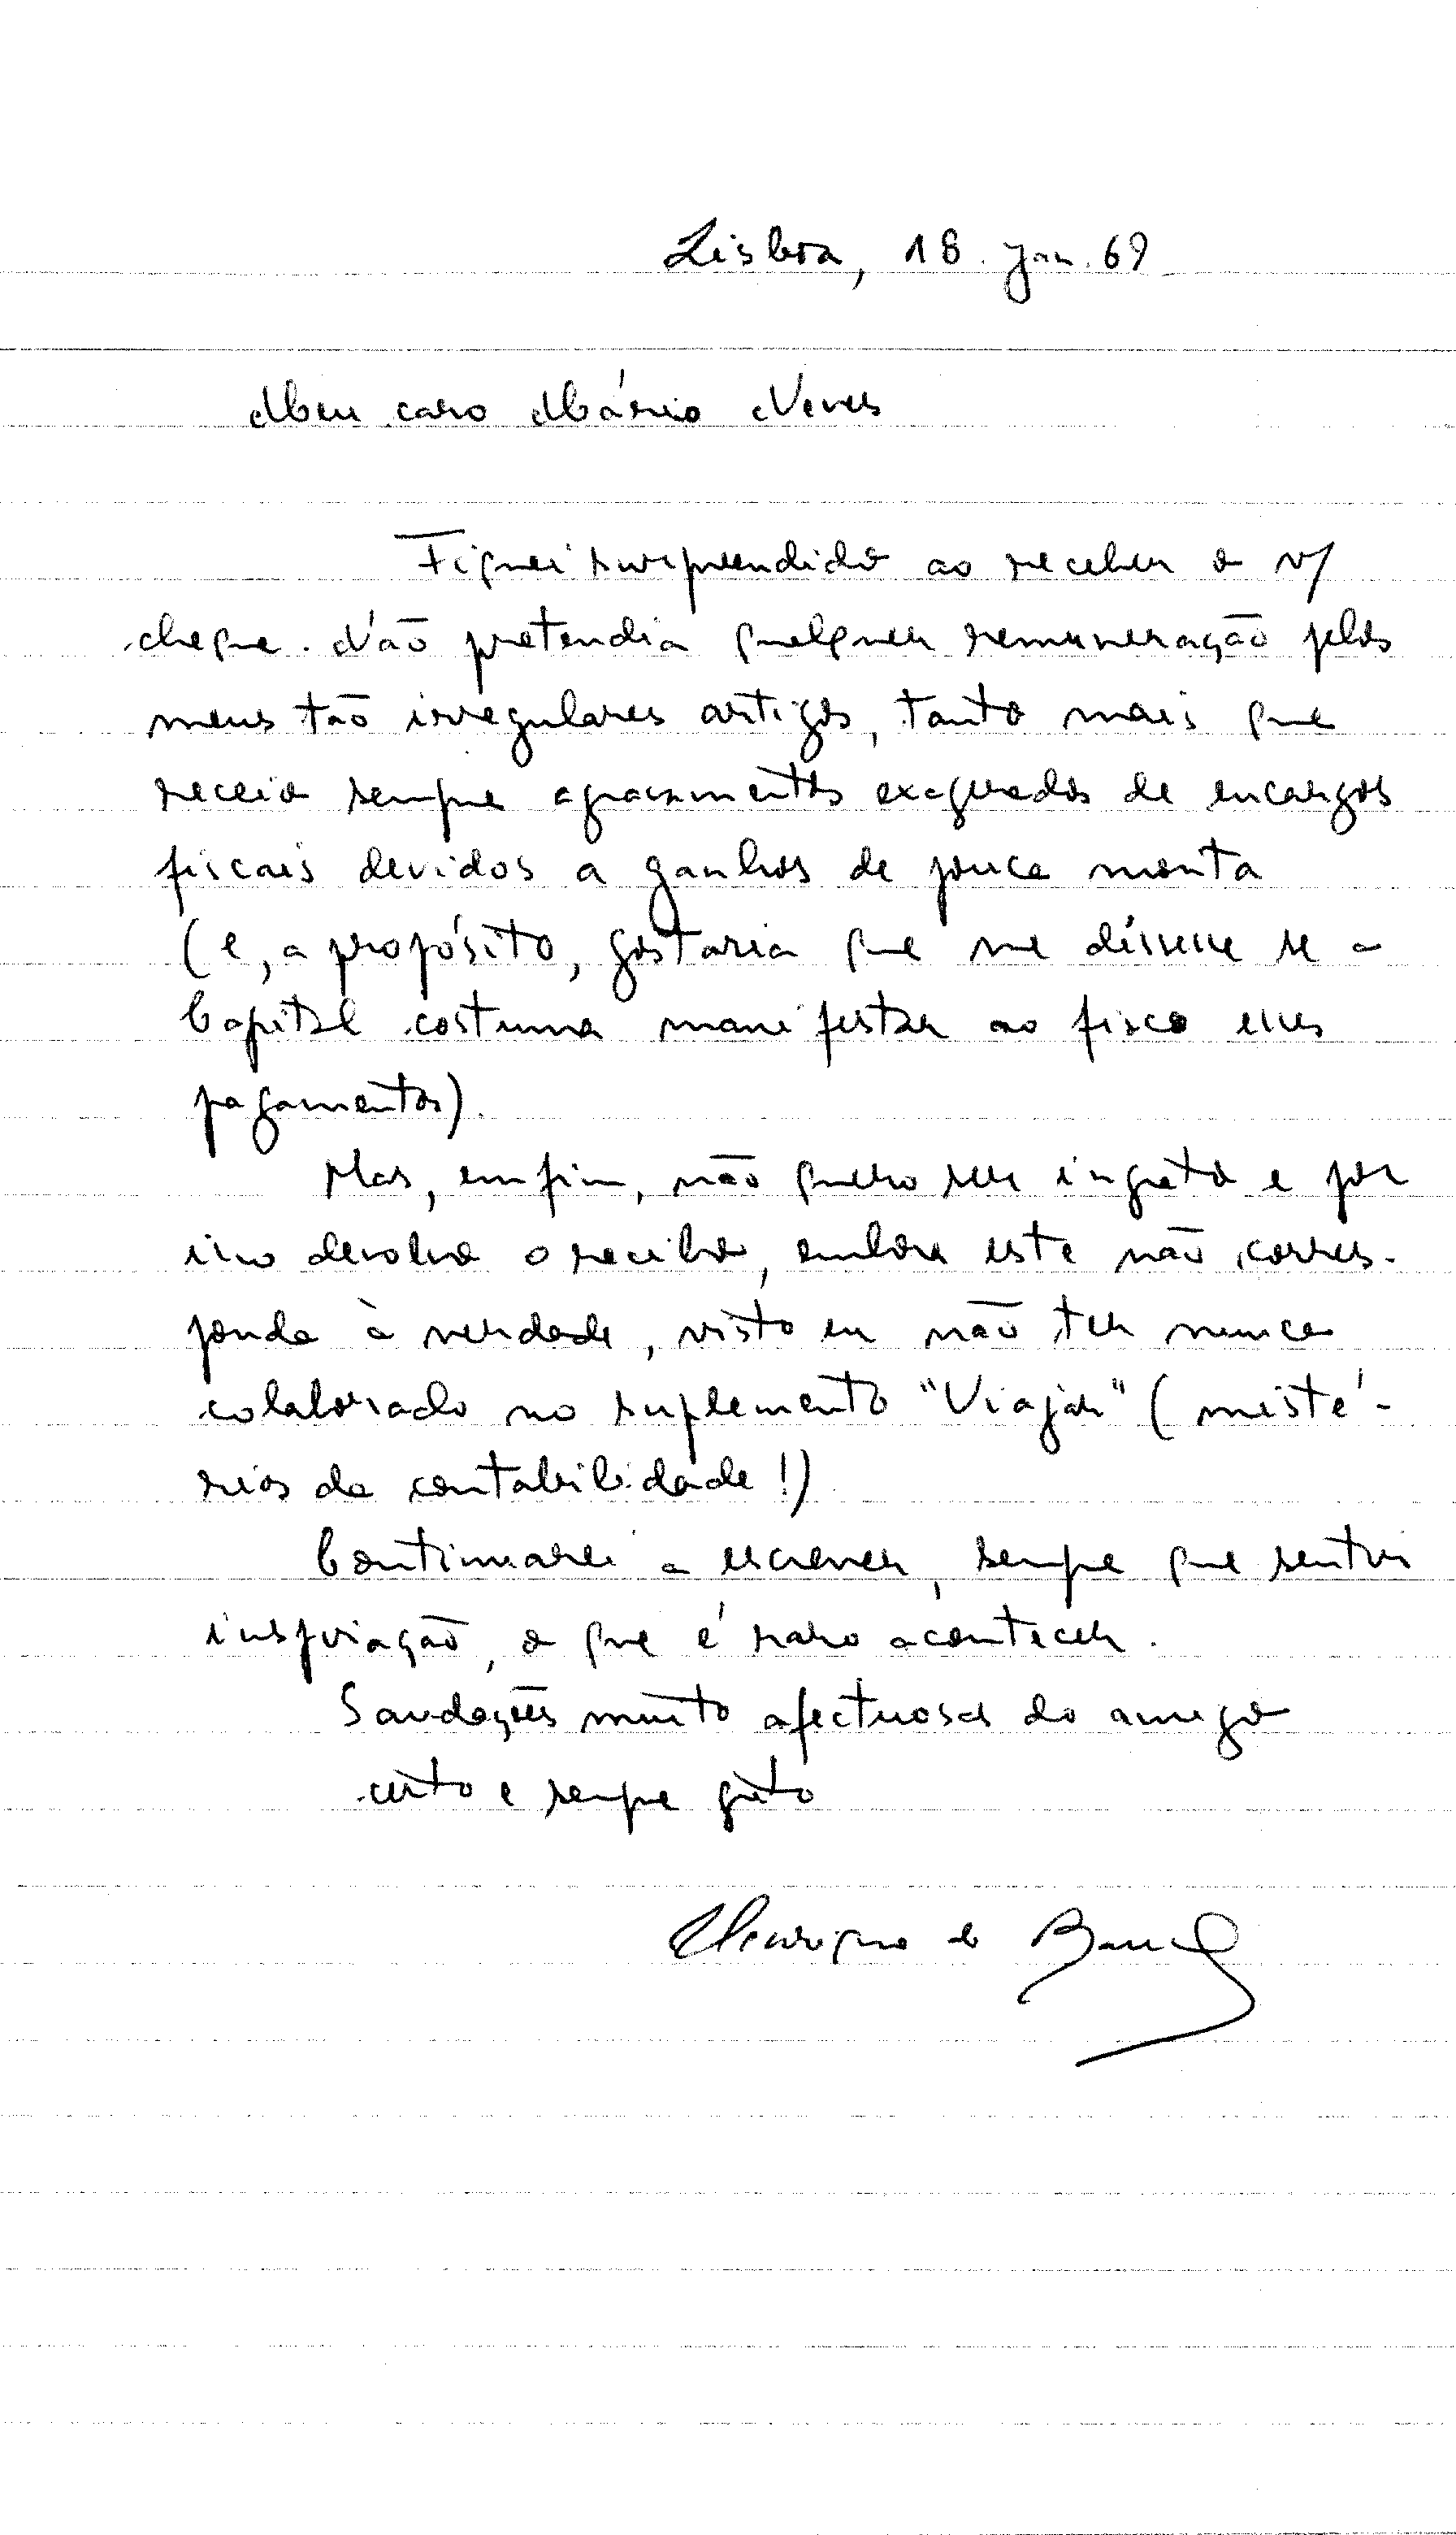 Lisboa, 18. Jan. 69
Meu caro Mário Neves
Fiquei surpreendido ao receber o v/
cheque. Não pretendia qualquer remuneração pelos
meus tão irregulares artigos, tanto mais que
receio sempre agravamentos exagerados de encargos
fiscais devidos a ganhos de pouca monta
(e, a propósito, gostaria que me dissesse se a
Capital costuma manifestar ao fisco esses
pagamentos).
Mas, enfim, não quero ser ingrato e por
isso devolvo o recibo, embora este não corres-
ponda à verdade, visto eu não ter nunca
colaborado no suplemento "Viajar" (misté-
rios da contabilidade!)
Continuarei a escrever, sempre que sentir
inspiração, o que é raro acontecer.
Saudações muito afectuosas do amigo
certo e sempre grato
Henrique de